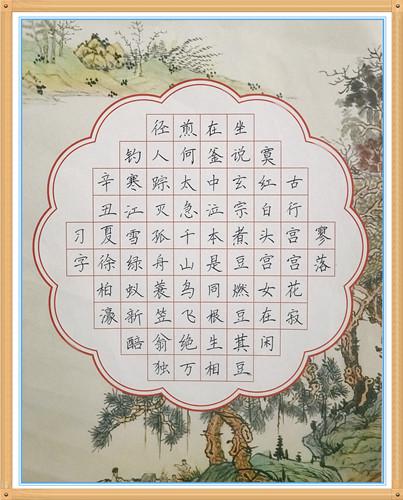 寥落
古行宫宫花寂
寞红白头宫女在闲
坐说玄宗煮豆燃豆萁豆
在釜中泣本是同根生相
煎何太急千山鸟飞绝万
径人踪灭孤舟蓑笠翁独
钓寒江雪绿蚁新醅
辛丑夏徐柏濠
习字